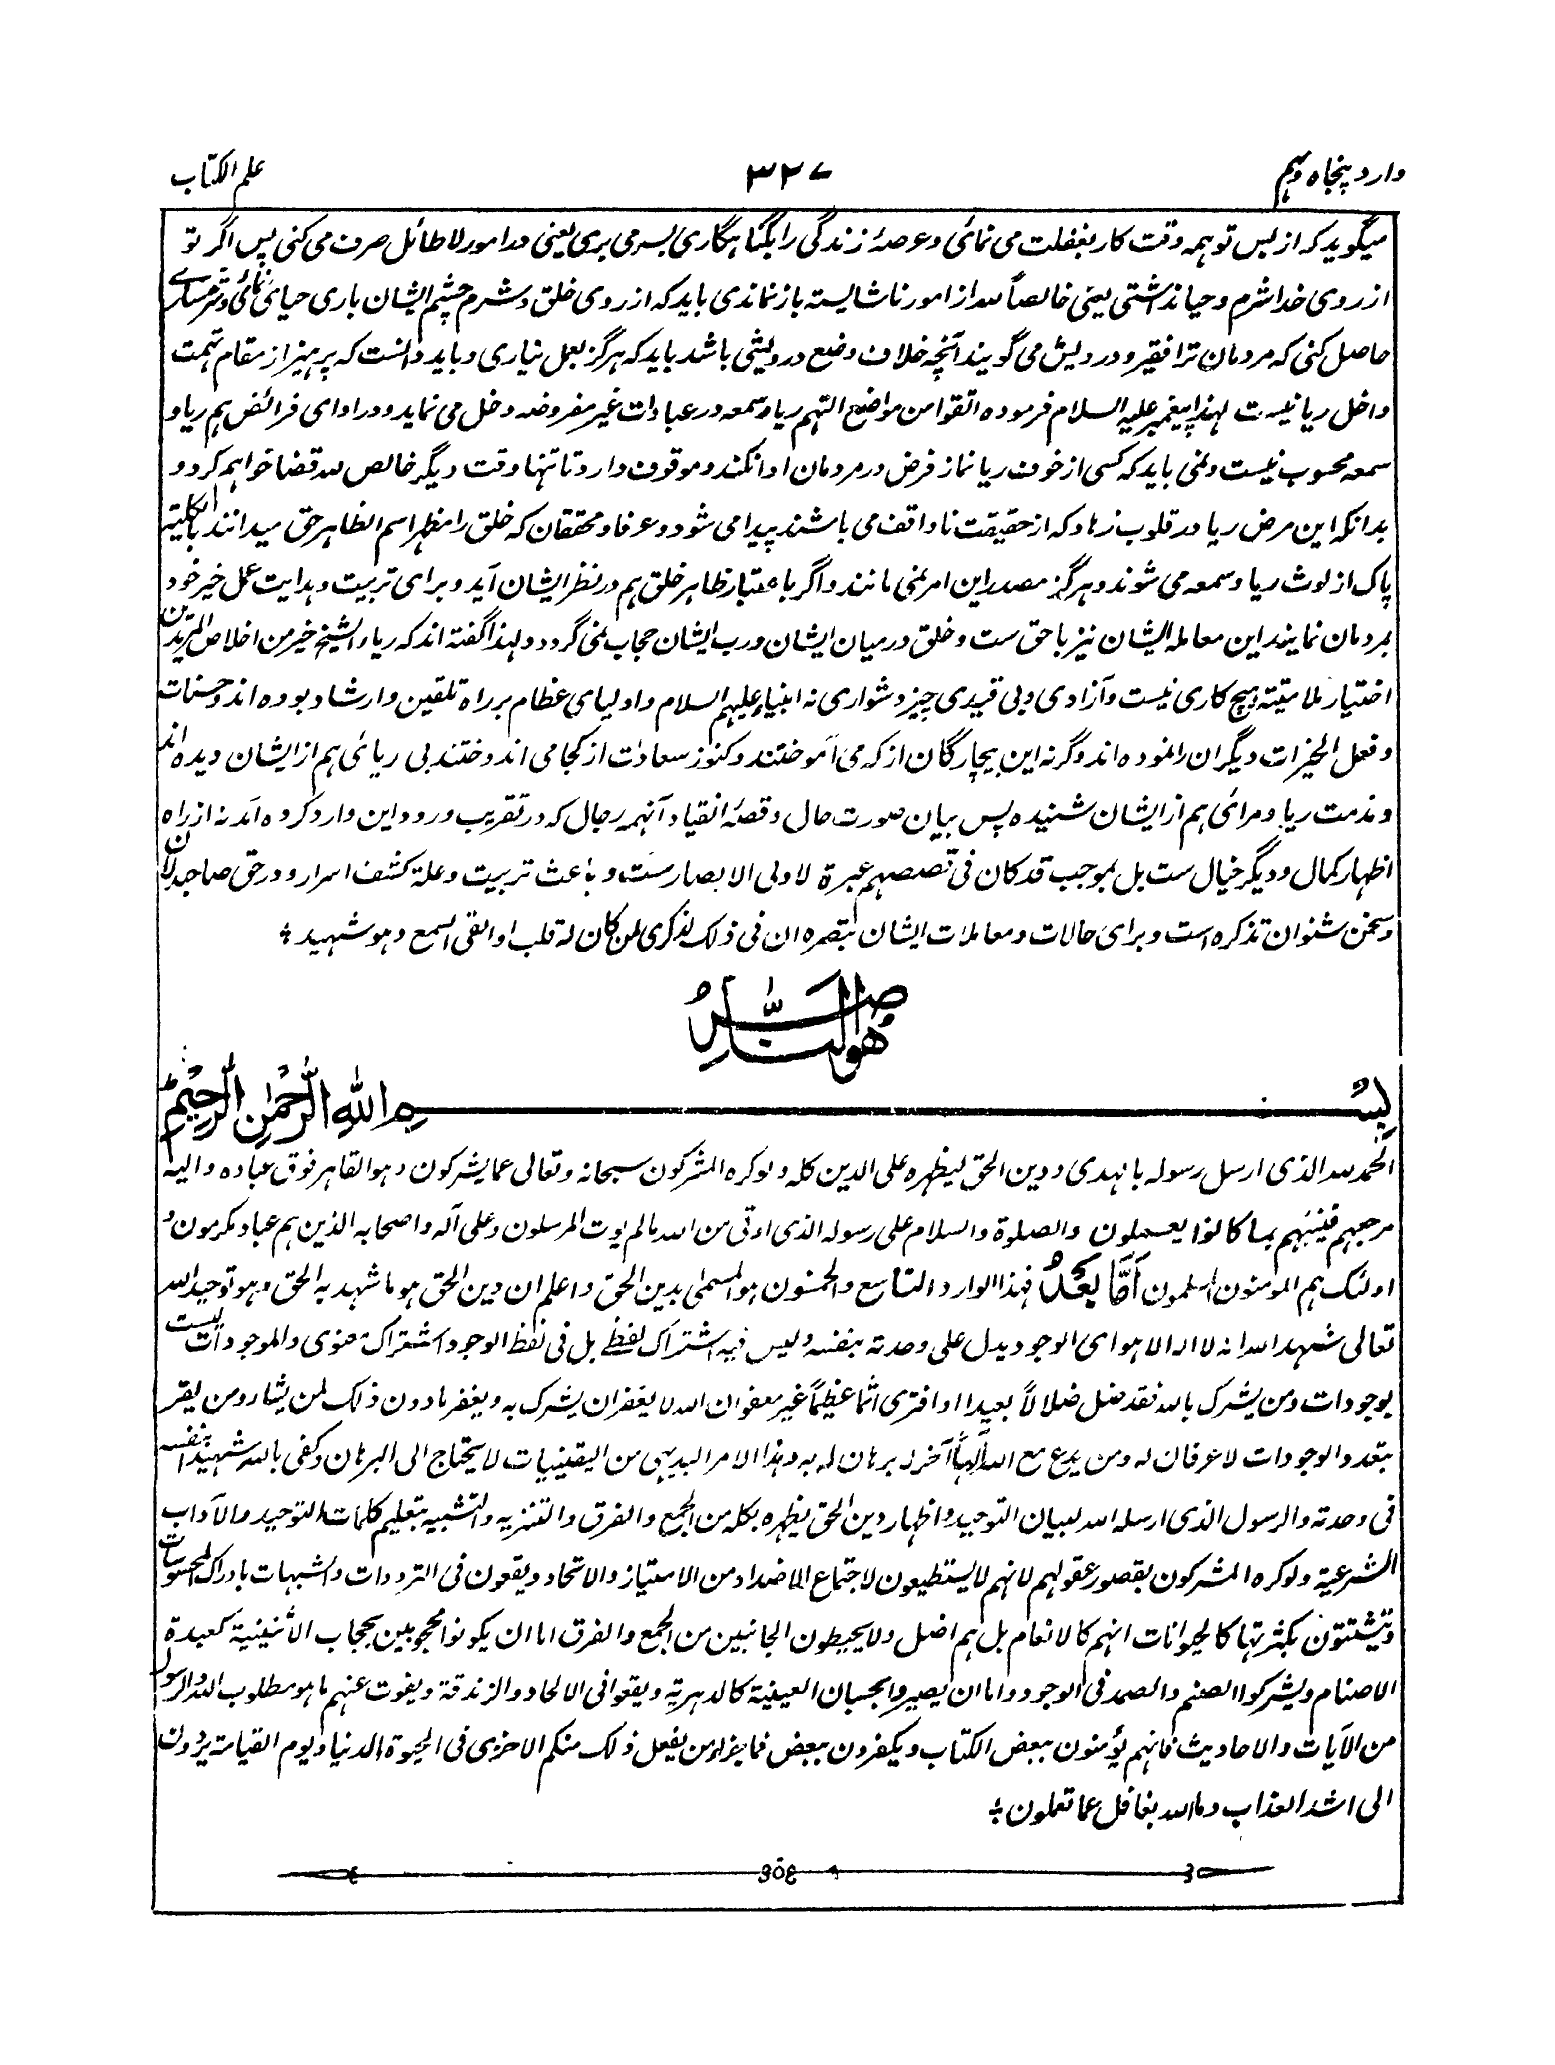 وارد پنجاه و نهم ۳۲۷ علم الکتاب
میگوید که از بس تو همه وقت کار بغفلت می نمائی و عرصهٔ زندگی را بگناهگاری بسر می بری یعنی در امور لا طائل صرف می کنی پس اگر تو
از روی خدا شرم و حیا نداشتی یعنی خالصاً لله از امور ناشایسته باز نماندی باید که از روی خلق و شرم چشم ایشان باری حیای
حاصل کنی که مردمان ترا فقیر و درویش می گویند آنچه خلاف وضع درویشی باشد باید که هرگز بعمل نیاری و باید دانست که پرهیز از مقام تهمت
داخل ریا نیست لهذا پیغمبر علیه السلام فرموده اتقوا من مواضع التهم ریا و سمعه در عبادات غیر مفروضه دخل می نماید و در ادای فرائض هم ریا و
سمعه محسوب نیست و نمی باید که کسی از خوف ریا نماز فرض در مردمان ادا نکند و موقوف دارد تا تنها وقت دیگر خالص لله قضا خواهم کرد و
بدانکه این مرض ریا در قلوب زهاد که از حقیقت ناواقف می باشند پیدا می شود و عرفا و محققان که خلق را مظهر اسم الظاهر حق میدانند بالکلیته
پاک از لوث ریا و سمعه می شوند و هرگز مصدر این امر نمی مانند و اگر باعتبار ظاهر خلق هم در نظر ایشان آید و برای تربیت و هدایت عمل خیر خود
بمردمان نمایند این معامله ایشان نیز با حق ست و خلق در میان ایشان و رب ایشان حجاب نمی گردد و لهذا گفته اند که ریاء الشیخ خیر من اخلاص المریدین
اختیار ملامتیته هیچ کاری نیست و آزادی و بی قیدی چیز دشواری نه انبیاء علیهم السلام و اولیای عظام بر راه تلقین و ارشاد بوده اند و حسنات
و فعل الخیرات دیگران را نموده اند وگرنه این بیچارگان از که می آموختند و کنوز سعادات از کجا می اندوختند بی ریائی هم از ایشان دیده اند
و مذمت ریا و مرائی هم از ایشان شنیده پس بیان صورت حال و قصهٔ انقیاد آنهمه رجال که در تقریب ورود این وارد کرده آمد نه از راه
اظهار کمال و دیگر خیال ست بل بموجب قد کان فی قصصهم عبرة لاولی الابصار ست و باعث تربیت و علة کشف اسرار و در حق صاحبدلان
و سخن شنوان تذکره است و برای حالات و معاملات ایشان تبصره ان فی ذلک لذکری لمن کان له قلب او القی السمع و هو شهید
هو الناصر
بسم الله الرحمن الرحیم
الحمد لله الذی ارسل رسوله بالهدی و دین الحق لیظهره علی الدین کله و لو کره المشرکون سبحانه و تعالی عما یشرکون و هو القاهر فوق عباده و الیه
مرجعهم فینبئهم بما کانوا یعملون والصلوة والسلام علی رسوله الذی اوتی من الله مالم یوت المرسلون و علی آله و اصحابه الذین هم عباد مکرمون و
اولئک هم المومنون المسلمون اَمَّا بَعْدُ فهذا الوارد التاسع و الخمسون هو المسمی بدین الحق و اعلم ان دین الحق هو ما شهد به الحق و هو توحید الله
تعالی شهد الله انه لا اله الا هو ای الوجود یدل علی وحدته بنفسه و لیس فیه اشتراک لفظی بل فی لفظ الوجود اشتراک معنوی والموجودات لیست
بوجودات و من یشرک بالله فقد ضل ضلالاً بعیدا او افتری اثما عظیماً غیر معفو ان الله لا یغفر ان یشرک به و یغفر ما دون ذلک لمن یشاء و من یقر
بتعدد الوجودات لا عرفان له و من یدع مع الله الٰهاً آخر لا برهان له به و هذا الامر البدیهی من الیقینیات لا یحتاج الی البرهان و کفی بالله شهیدا بنفسه
فی وحدته و الرسول الذی ارسله الله لبیان التوحید و اظهار دین الحق یظهره بکله من الجمع و الفرق و التنزیه و التشبیه بتعلیم کلمات التوحید و الآداب
الشرعیة و لو کره المشرکون بقصور عقولهم لانهم لا یستطیعون لاجتماع الاضداد من الامتیاز و الاتحاد و یقعون فی الترددات و الشبهات بادراک المحسوسات
و یتشتتون بکثرتها کالحیوانات انهم کالانعام بل هم اضل و لا یحیطون الجانبین من الجمع و الفرق اما ان یکونوا محجوبین بحجاب الاثنینیة کعبدة
الاصنام و یشرکوا الصنم و الصمد فی الوجود و اما ان یصیروا بحسبان العینیة کالدهریة و یقعوا فی الالحاد و الزندقة و یفوت عنهم ما هو مطلوب الله و الرسول
من الآیات و الاحادیث فانهم یؤمنون ببعض الکتاب و یکفرون ببعض فما جزاء من یفعل ذلک منکم الا خزی فی الحیوة الدنیا و یوم القیامة یردون
الی اشد العذاب و ما الله بغافل عما تعملون